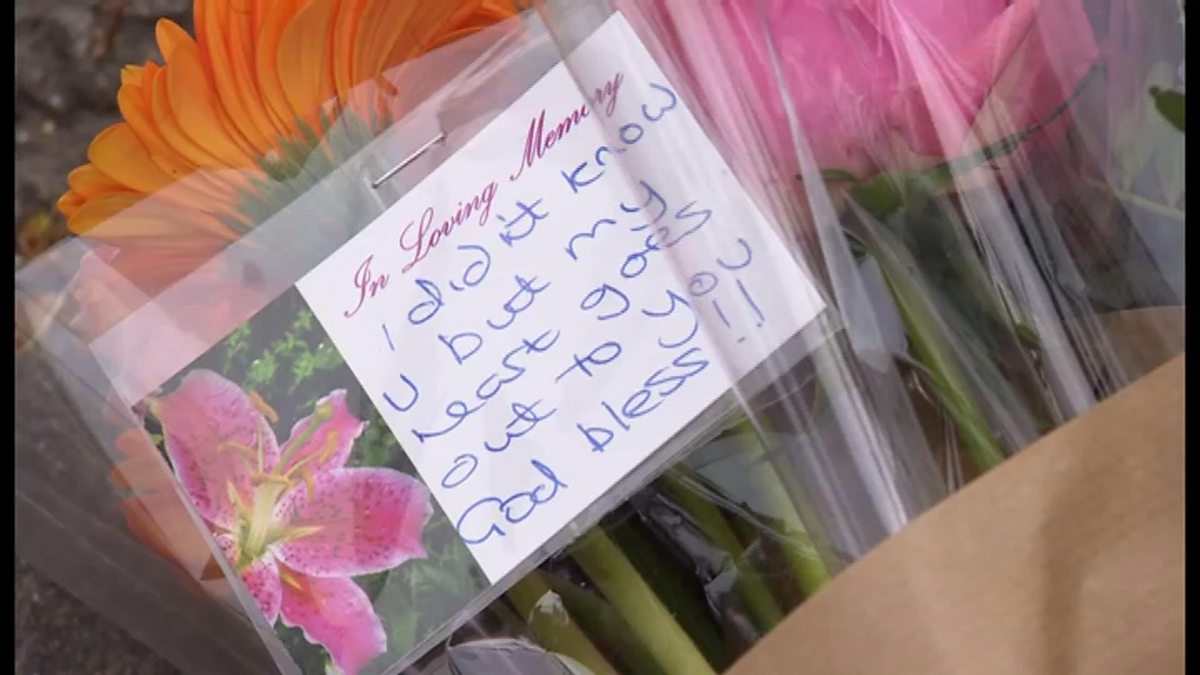 In Loving Memory
I did'nt know
U but my
heart goes
out to you
God bless!!